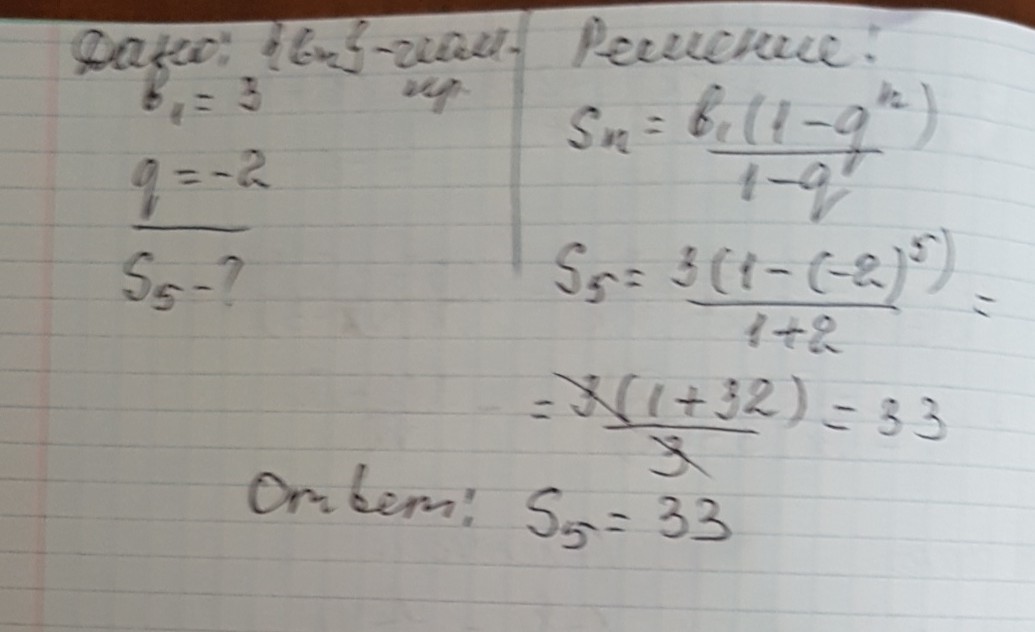 Дано: {bₙ}-геом.
пр.
b₁ = 3
q = -2
S₅ - ?
Решение:
Sₙ = b₁(1-qⁿ) / 1-q
S₅ = 3(1-(-2)⁵) / 1+2 =
= 3(1+32) / 3 = 33
Ответ: S₅ = 33